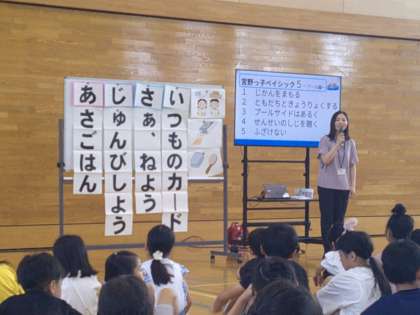 いつものカード
さぁ、ねよう
じゅんびしよう
あさごはん
宮野っ子ベイシック5
1 じかんをまもる
2 ともだちときょうりょくする
3 プールサイドはあるく
4 せんせいのしじを聴く
5 ふざけない